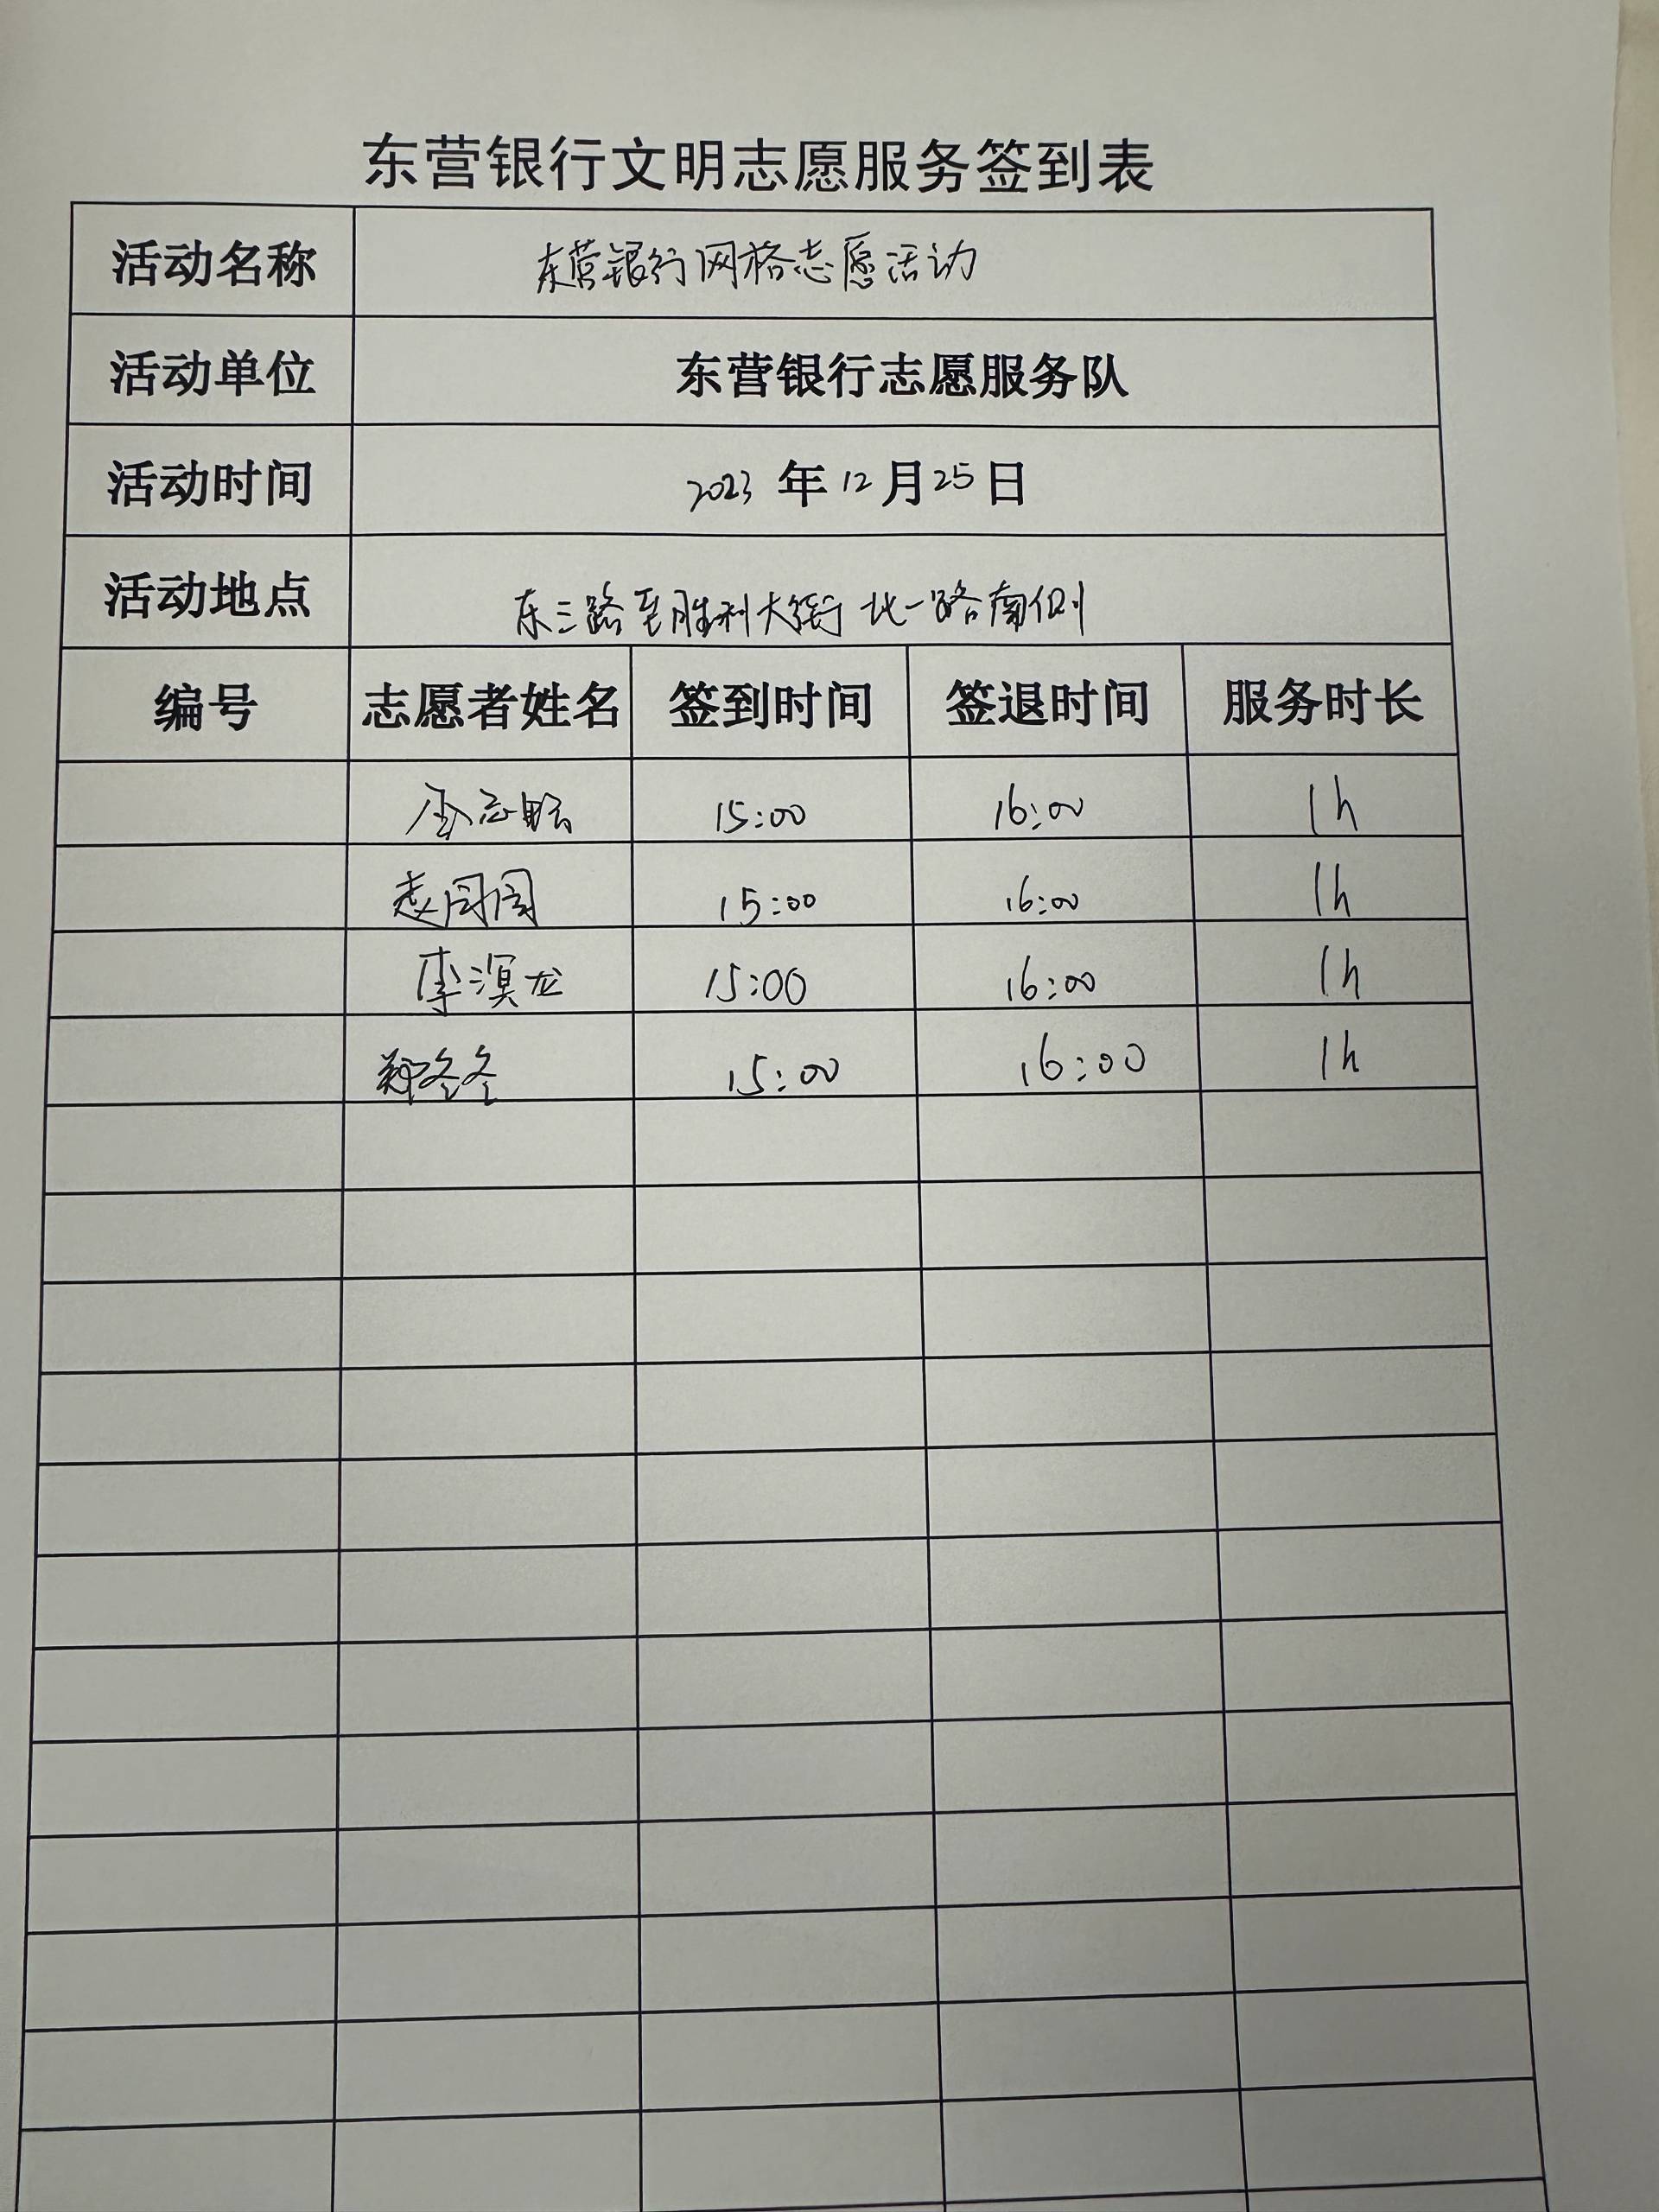 东营银行文明志愿服务签到表
活动名称 东营银行网格志愿活动
活动单位 东营银行志愿服务队
活动时间 2023 年 12 月 25 日
活动地点 东三路至胜利大街 北一路南侧
编号 志愿者姓名 签到时间 签退时间 服务时长
15:00 16:00 1h
赵同同 15:00 16:00 1h
李溟龙 15:00 16:00 1h
郑冬冬 15:00 16:00 1h